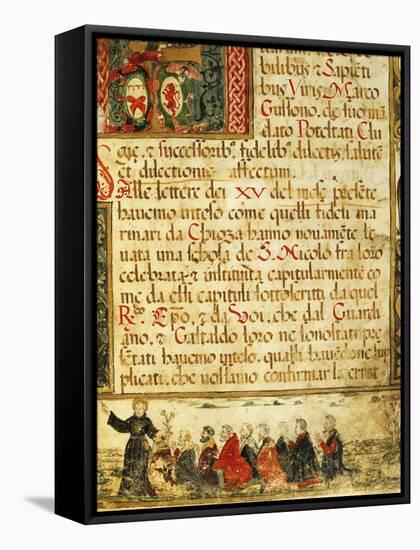 bilibus & Sapieti
bus Viris Marco
Gussono, de suo man
dato Potestati Clu
gie, & successorib⁹ fidelib⁹ dilectis salute
et dilectionis affectum.
Alle lettere dei XV del mese presete
havemo inteso come quelli fideli ma
rinari da Chioza hanno novamete le
uata una schola de S. Nicolo fra loro
celebrata & instituita capitularmente co
me da essi capituli sottoscritti da quel
R.^do Epo, & da Voi, che dal Guardi
ano, & Gastaldo loro ne sono stati pre
setati havemo inteso, quali havedone sup
plicati, che vossamo confirmar la